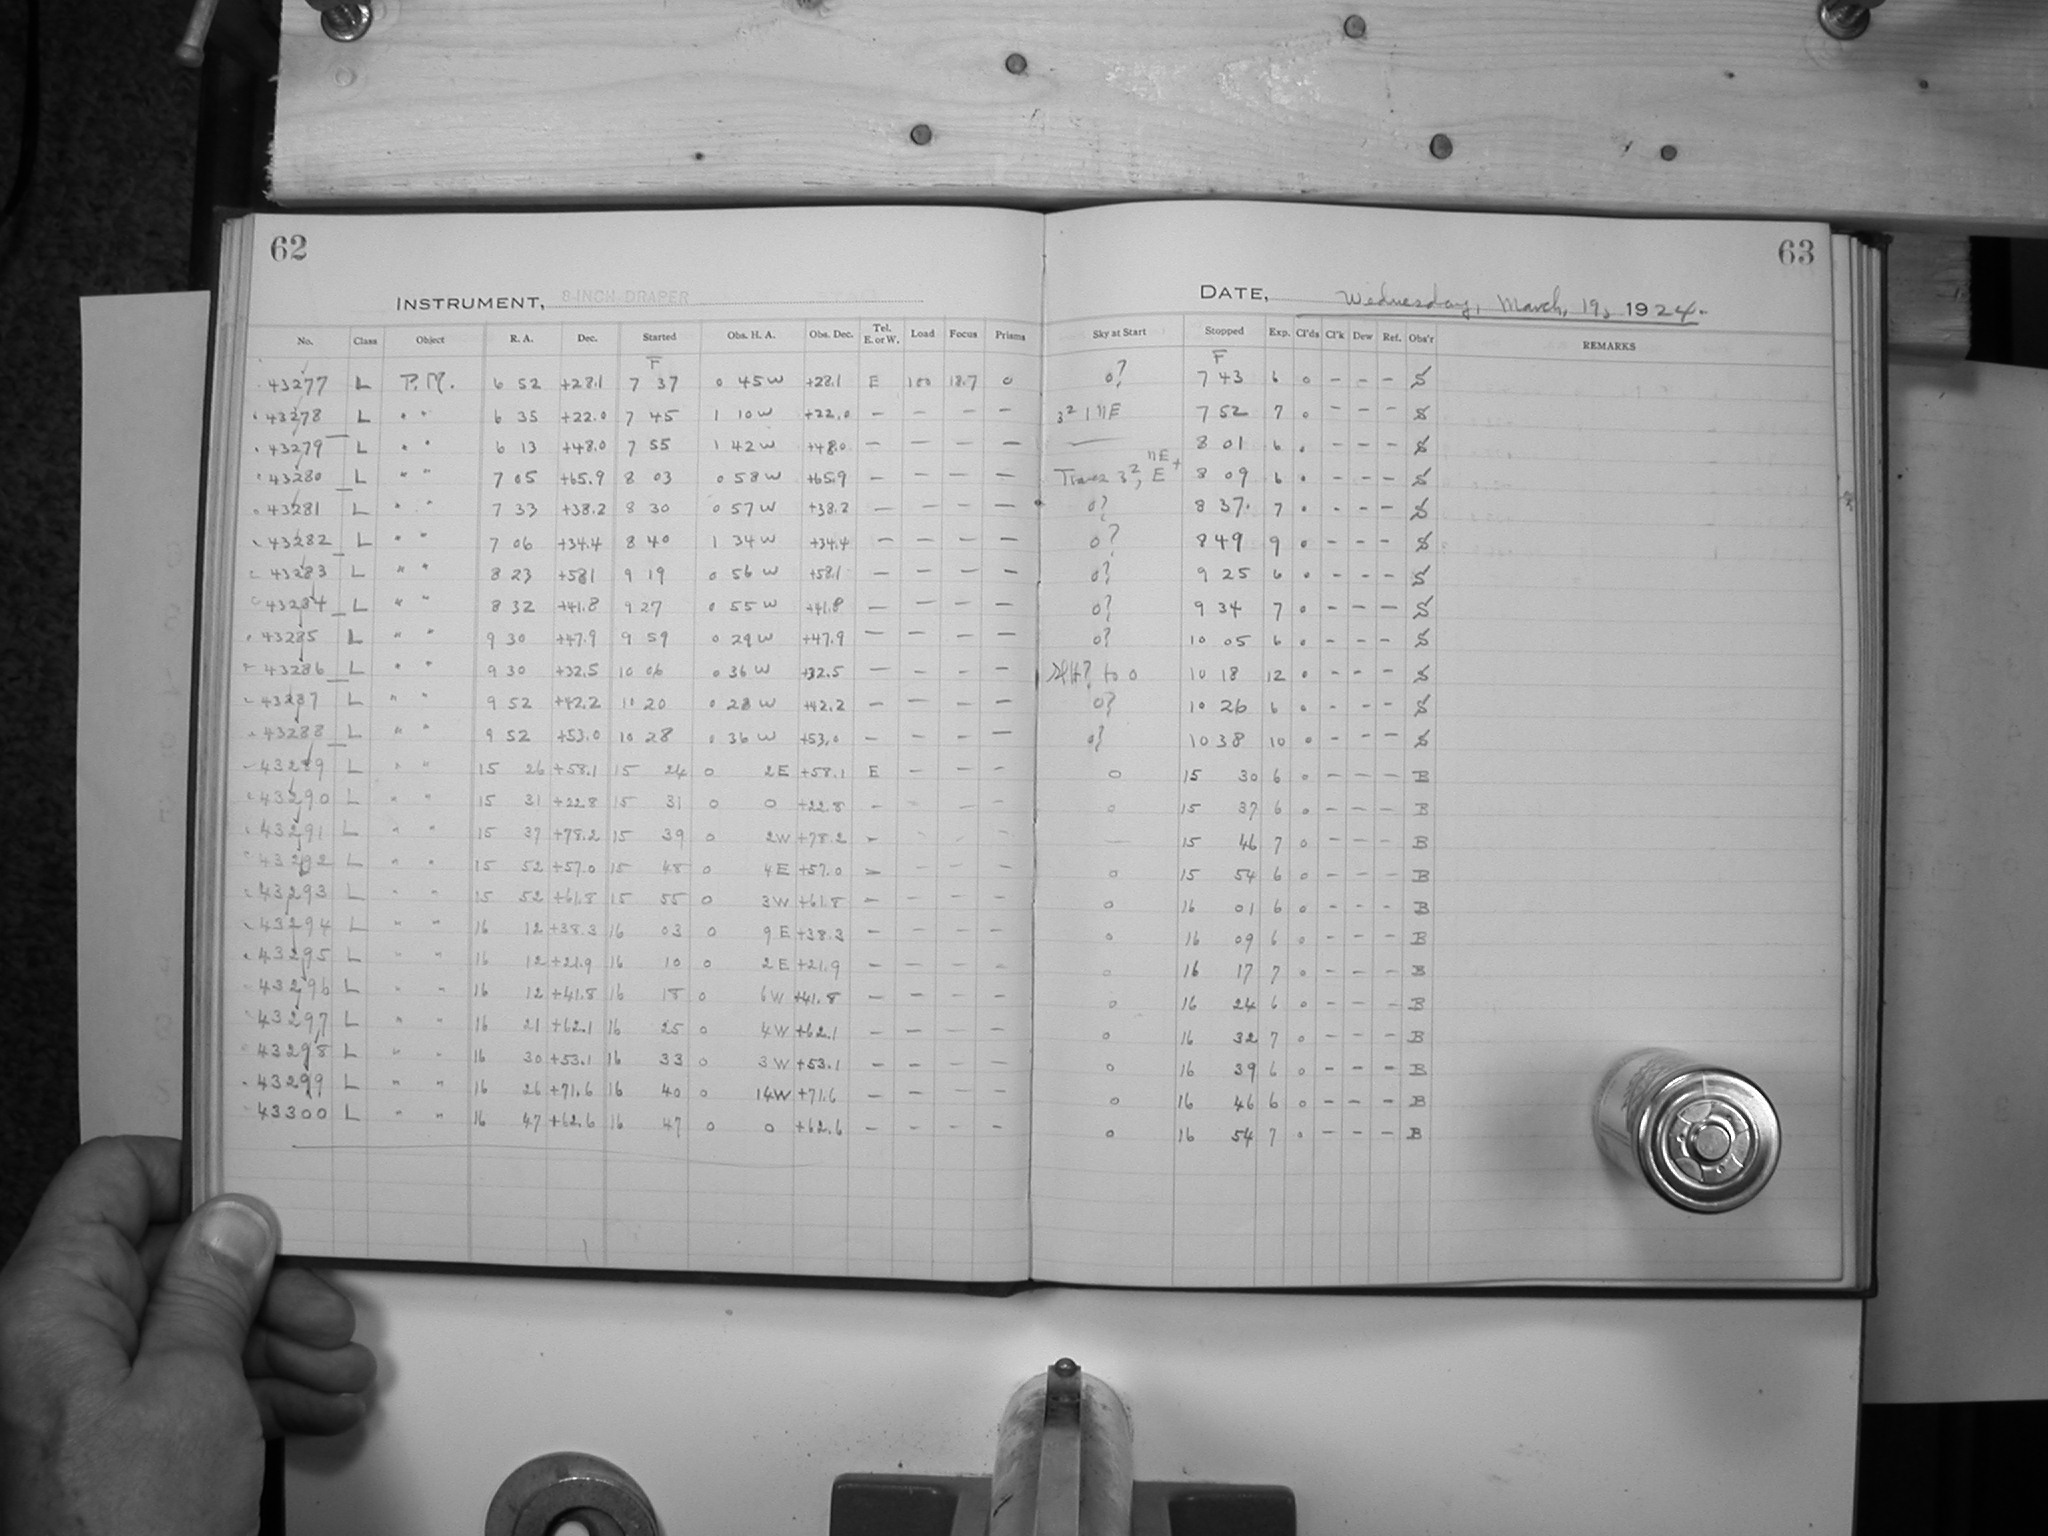 62
63
INSTRUMENT, 8-INCH DRAPER
DATE, Wednesday, March, 19, 1924.
No. Class Object R. A. Dec. Started Obs. H. A. Obs. Dec. Tel. E. or W. Load Focus Prisms Sky at Start Stopped Exp. Cl'ds Cl'k Dew Ref. Obs'r REMARKS
F F
43277 L P.M. 6 52 +28.1 7 37 0 45 W +28.1 E 180 18.7 0 0? 7 43 6 0 - - - S
43278 L " " 6 35 +22.0 7 45 1 10 W +22.0 - - - - 3² 1 NE 7 52 7 0 - - - S
43279 L " " 6 13 +48.0 7 55 1 42 W +48.0 - - - - — 8 01 6 0 - - - S
43280 L " " 7 05 +65.9 8 03 0 58 W +65.9 - - - - 3², E NE + 8 09 6 0 - - - S
43281 L " " 7 33 +38.2 8 30 0 57 W +38.2 - - - - 0? 8 37 7 0 - - - S
43282 L " " 7 06 +34.4 8 40 1 34 W +34.4 - - - - 0? 8 49 9 0 - - - S
43283 L " " 8 23 +58.1 9 19 0 56 W +58.1 - - - - 0? 9 25 6 0 - - - S
43284 L " " 8 32 +41.8 9 27 0 55 W +41.8 - - - - 0? 9 34 7 0 - - - S
43285 L " " 9 30 +47.9 9 59 0 29 W +47.9 - - - - 0? 10 05 6 0 - - - S
43286 L " " 9 30 +32.5 10 06 0 36 W +32.5 - - - - to 0 10 18 12 0 - - - S
43287 L " " 9 52 +42.2 10 20 0 28 W +42.2 - - - - 0? 10 26 6 0 - - - S
43288 L " " 9 52 +53.0 10 28 0 36 W +53.0 - - - - 0? 10 38 10 0 - - - S
43289 L " " 15 26 +58.1 15 24 0 2 E +58.1 E - - - 0 15 30 6 0 - - - B
43290 L " " 15 31 +22.8 15 31 0 0 +22.8 - - - - 0 15 37 6 0 - - - B
43291 L " " 15 37 +78.2 15 39 0 2 W +78.2 - - - - — 15 46 7 0 - - - B
43292 L " " 15 52 +57.0 15 48 0 4 E +57.0 - - - - 0 15 54 6 0 - - - B
43293 L " " 15 52 +61.8 15 55 0 3 W +61.8 - - - - 0 16 01 6 0 - - - B
43294 L " " 16 12 +38.3 16 03 0 9 E +38.3 - - - - 0 16 09 6 0 - - - B
43295 L " " 16 12 +21.9 16 10 0 2 E +21.9 - - - - 0 16 17 7 0 - - - B
43296 L " " 16 12 +41.8 16 18 0 6 W +41.8 - - - - 0 16 24 6 0 - - - B
43297 L " " 16 21 +62.1 16 25 0 4 W +62.1 - - - - 0 16 32 7 0 - - - B
43298 L " " 16 30 +53.1 16 33 0 3 W +53.1 - - - - 0 16 39 6 0 - - - B
43299 L " " 16 26 +71.6 16 40 0 14 W +71.6 - - - - 0 16 46 6 0 - - - B
43300 L " " 16 47 +62.6 16 47 0 0 +62.6 - - - - 0 16 54 7 0 - - - B